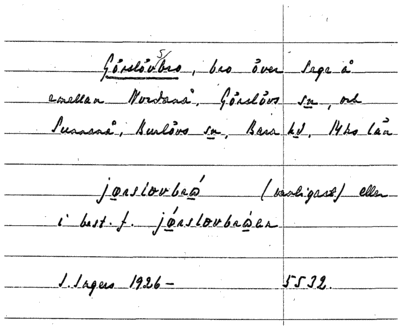 Görslövsbro, bro över Sege å
emellan Nordanå, Görslövs sn, och
Sunnanå, Burlövs sn, Bara hd, Mhs län
jǫrslovbrǫ́ (vanligast) eller
i best. f. jǫ́rslovbrǫ́en
S. Ingers 1926 – 5532.